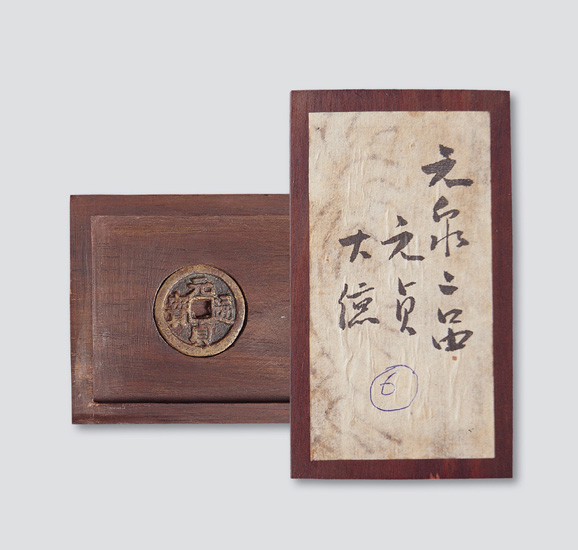 元泉二品
元貞
大德
元貞通寶